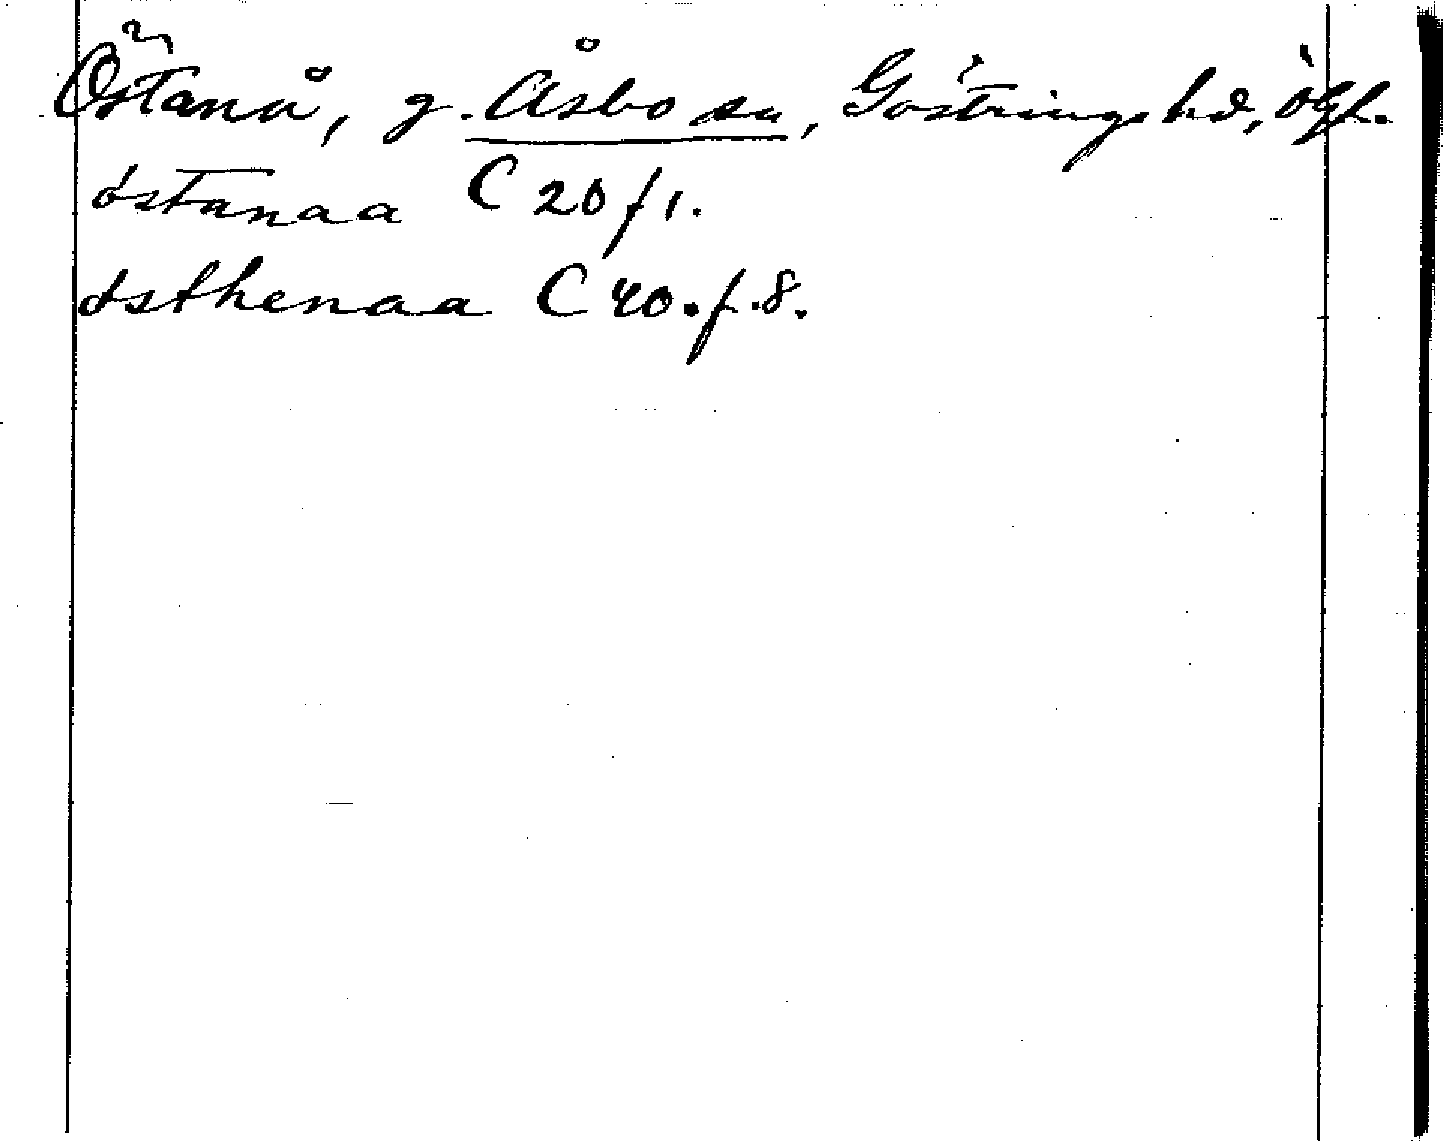 Östanå, g. Åsbo sn, Göstrings hd, Ögl.
østanaa C 20 f 1.
østhenaa C 40. f. 8.